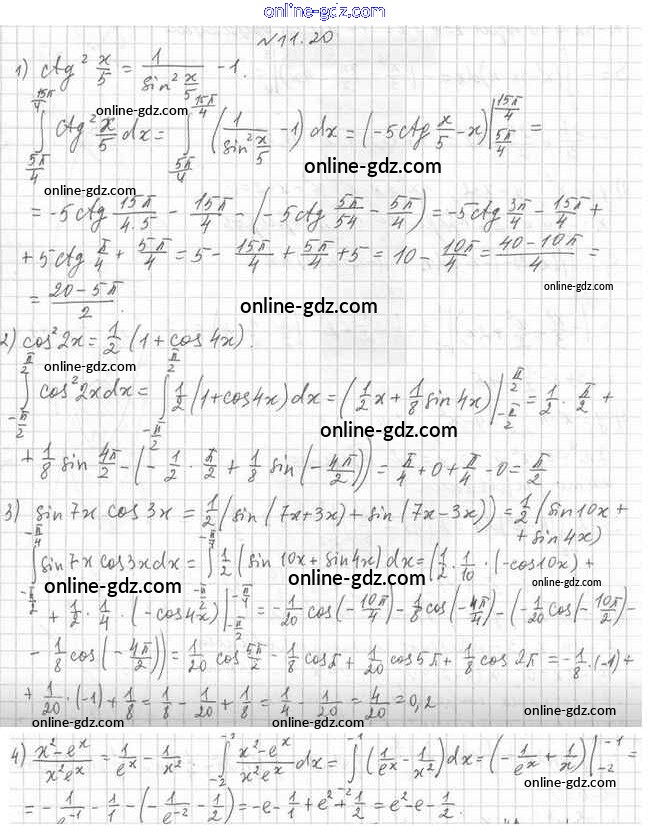 online-gdz.com
N 11.20
1) ctg² x/5 = 1/sin² x/5 - 1.
online-gdz.com
∫_{5π/4}^{15π/4} ctg² x/5 dx = ∫_{5π/4}^{15π/4} (1/sin² x/5 - 1) dx = (-5ctg x/5 - x)|_{5π/4}^{15π/4} =
online-gdz.com
= -5ctg 15π/4·5 - 15π/4 - (-5ctg 5π/54 - 5π/4) = -5ctg 3π/4 - 15π/4 +
+ 5ctg π/4 + 5π/4 = 5 - 15π/4 + 5π/4 + 5 = 10 - 10π/4 = (40-10π)/4 =
online-gdz.com
= (20-5π)/2.
online-gdz.com
2) cos² 2x = 1/2 (1 + cos 4x).
online-gdz.com
∫_{-π/2}^{π/2} cos² 2x dx = ∫_{-π/2}^{π/2} 1/2 (1+cos4x) dx = (1/2 x + 1/8 sin 4x)|_{-π/2}^{π/2} = 1/2 · π/2 +
online-gdz.com
+ 1/8 sin 4π/2 - (-1/2 · π/2 + 1/8 sin(-4π/2)) = π/4 + 0 + π/4 - 0 = π/2.
3) sin 7x cos 3x = 1/2 (sin(7x+3x) + sin(7x-3x)) = 1/2 (sin10x +
+ sin 4x)
∫_{-π/2}^{-π/4} sin 7x cos3x dx = ∫_{-π/2} 1/2 (sin 10x + sin4x) dx = (1/2 · 1/10 · (-cos10x) +
online-gdz.com online-gdz.com online-gdz.com
+ 1/2 · 1/4 · (-cos4x)|_{-π/2}^{-π/4} = -1/20 cos(-10π/4) - 1/8 cos(-4π/4) - (-1/20 cos(-10π/2) -
- 1/8 cos(-4π/2)) = 1/20 cos 5π/2 - 1/8 cos π + 1/20 cos 5π + 1/8 cos 2π = -1/8 · (-1) +
online-gdz.com
+ 1/20 · (-1) + 1/8 = 1/8 - 1/20 + 1/8 = 1/4 - 1/20 = 4/20 = 0,2.
online-gdz.com online-gdz.com online-gdz.com
4) (x²-eˣ)/(x²eˣ) = 1/eˣ - 1/x². ∫_{-2}^{-1} (x²-eˣ)/(x²eˣ) dx = ∫^{-1} (1/eˣ - 1/x²) dx = (-1/eˣ + 1/x)|_{-2}^{-1} =
online-gdz.com online-gdz.com
= -1/e⁻¹ - 1/1 - (-1/e⁻² - 1/2) = -e - 1/1 + e² + 1/2 = e² - e - 1/2.
online-gdz.com